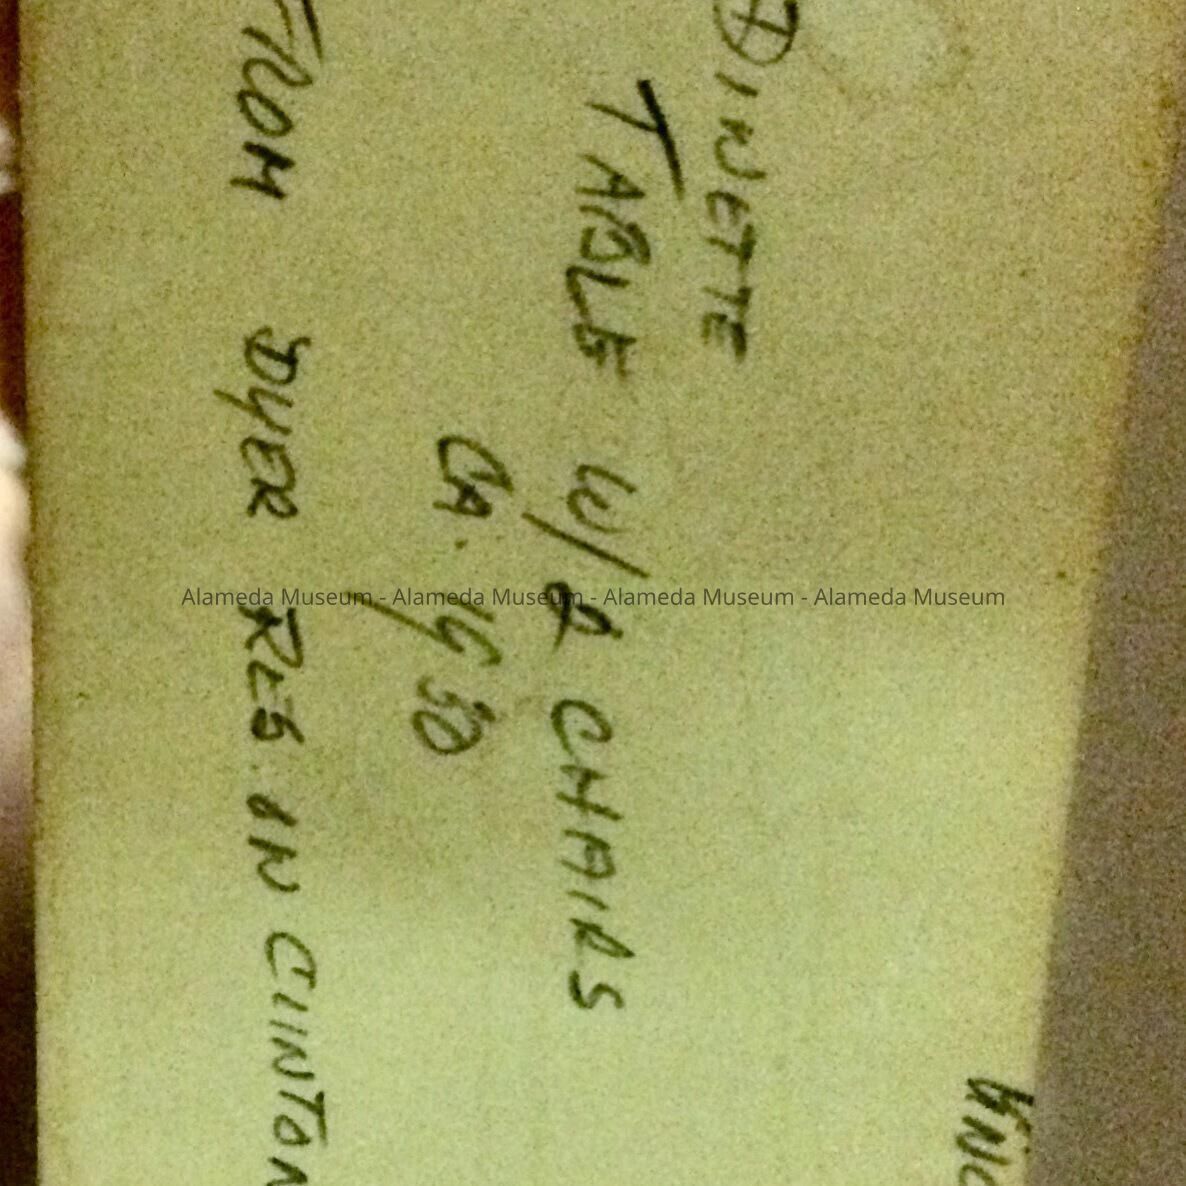 DINETTE
TABLE W/2 CHAIRS
CA. 1950
FROM DYER RES. ON CLINTON
Alameda Museum - Alameda Museum - Alameda Museum - Alameda Museum